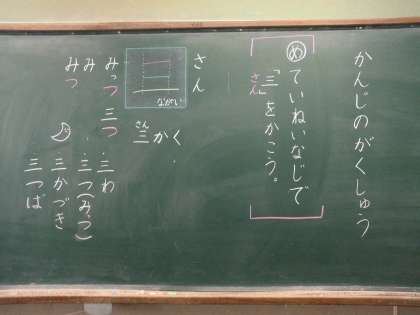 かんじのがくしゅう
め ていねいなじで
「三」をかこう。
さん
さん
三
ながい
みっつ
み
みつ
三つ
三かく
さん
三わ
三つ(みつ)
三かづき
三つば